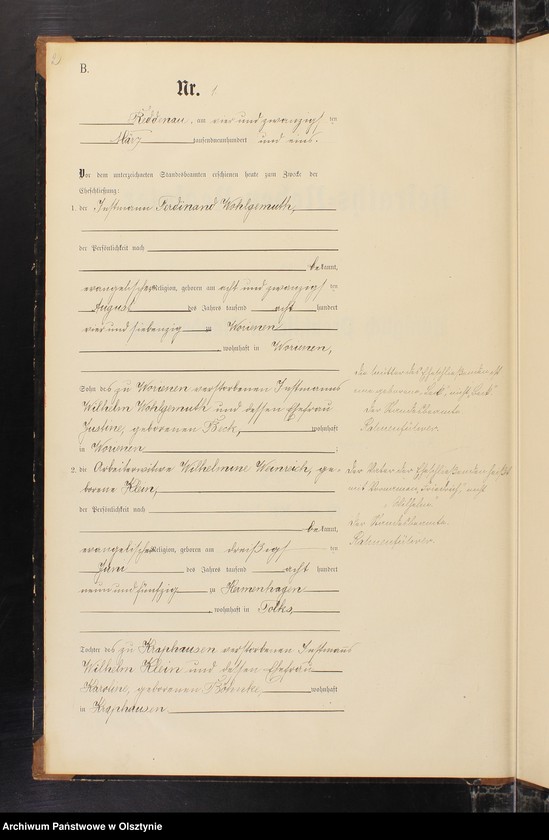 B.
Nr. 1
Roddenau, am vier und zwanzigs ten
März tausendneunhundert und eins.
Vor dem unterzeichneten Standesbeamten erschienen heute zum Zwecke der
Eheschließung:
1. der Instmann Ferdinand Wohlgemuth,
der Persönlichkeit nach
bekannt,
evangelischer Religion, geboren am acht und zwanzigs ten
August des Jahres tausend acht hundert
vier und siebenzig zu Worienen
, wohnhaft in Worienen,
Sohn des zu Worienen verstorbenen Instmanns
Wilhelm Wohlgemuth und dessen Ehefrau
Justine, geborenen Beck, wohnhaft
in Worienen ;
2. die Arbeiterwitwe Wilhelmine Weinreich, ge-
borene Klein,
der Persönlichkeit nach
bekannt,
evangelischer Religion, geboren am dreißigs ten
Juni des Jahres tausend acht hundert
neun und fünfzig zu
, wohnhaft in Tolks,
Tochter des zu Kraphausen verstorbenen Instmanns
Wilhelm Klein und dessen Ehefrau
Karoline, geborenen wohnhaft
in Kraphausen
Die Mutter des Eheschließenden ist
eine geborene
Der Standesbeamte
Der Vater der Eheschließenden heißt
mit Vornamen "Friedrich" nicht
"Wilhelm"
Der Standesbeamte.
Archiwum Państwowe w Olsztynie